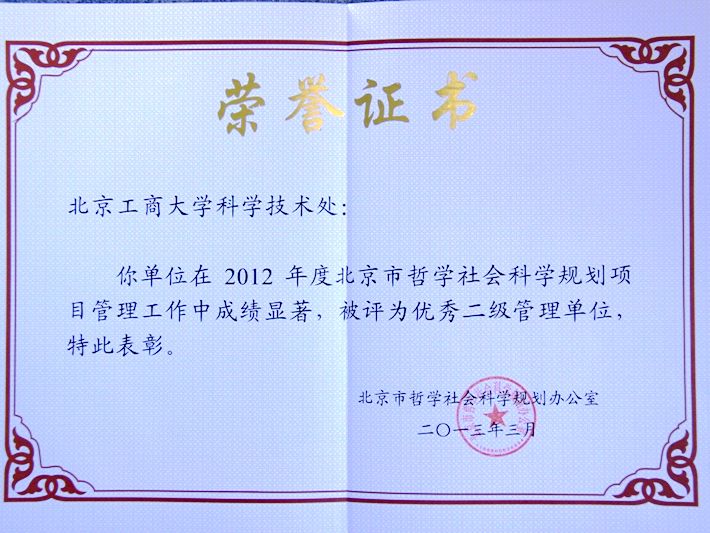 荣誉证书
北京工商大学科学技术处：
你单位在 2012 年度北京市哲学社会科学规划项
目管理工作中成绩显著，被评为优秀二级管理单位，
特此表彰。
北京市哲学社会科学规划办公室
二〇一三年三月